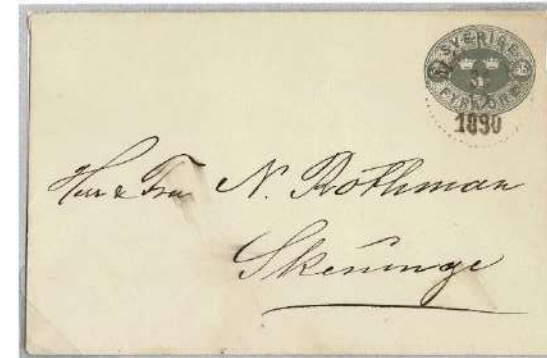 SVERIGE
FYRA ÖRE
31
12
1890
Herr & Fru N. Rothman
Skeninge